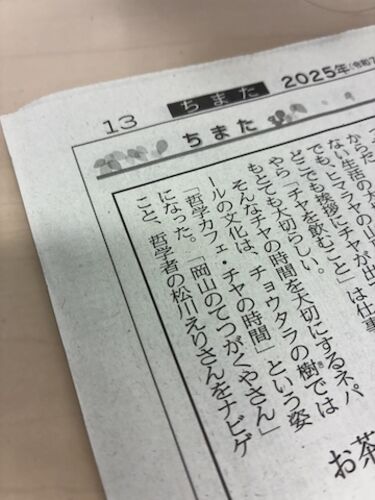 13
ちまた
2025年(令和7
ちまた
かった
ない生活の大
でも、ヒマラヤの山
どこでも挨拶にチャが出
やら「チャを飲むこと」は仕事
もとても大切らしい。
そんなチャの時間を大切にするネパ
ールの文化は、チョウタラの樹では
「哲学カフェ・チャの時間」という姿
になった。「岡山のてつがくやさん」
こと、哲学者の松川えりさんをナビゲ
お茶